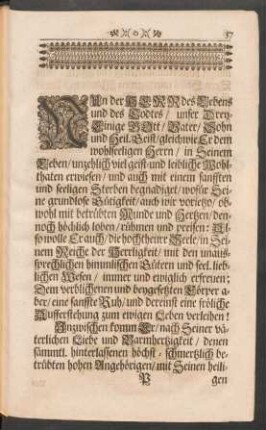 57
NUn der HERR des Lebens
und des Todtes / unser Drey-
Einige GOtt / Vater / Sohn
und Heil. Geist / gleichwie Er dem
wohlseeligen Herrn / in Seinem
Leben / unzehlich viel geist- und leibliche Wohl-
thaten erwiesen / und auch mit einem sanfften
und seeligen Sterben begnadiget / wofür Sei-
ne grundlose Gütigkeit / auch wir vorietzo / ob-
wohl mit betrübten Munde und Hertzen / den-
noch höchlich loben / rühmen und preisen: Al-
so wolle Er auch / die hochtheure Seele / in Sei-
nem Reiche der Herrligkeit / mit den unaus-
sprechlichen himmlischen Gütern und seel. lieb-
lichen Wesen / immer und ewiglich erfreuen;
Dem verblichenen und beygesetzten Cörper a-
ber / eine sanffte Ruh / und dereinst eine fröliche
Aufferstehung zum ewigen Leben verleihen!
Inzwischen komm Er / nach Seiner vä-
terlichen Liebe und Barmhertzigkeit / denen
sämmtl. hinterlassenen höchst-schmertzlich be-
trübten hohen Angehörigen / mit Seinen heili-
P gen